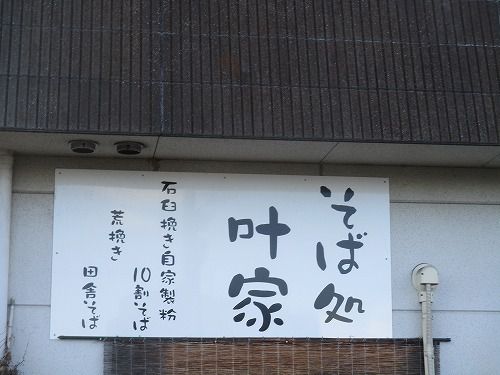 そば処
叶家
石臼挽き自家製粉
10割そば
荒挽き
田舎そば